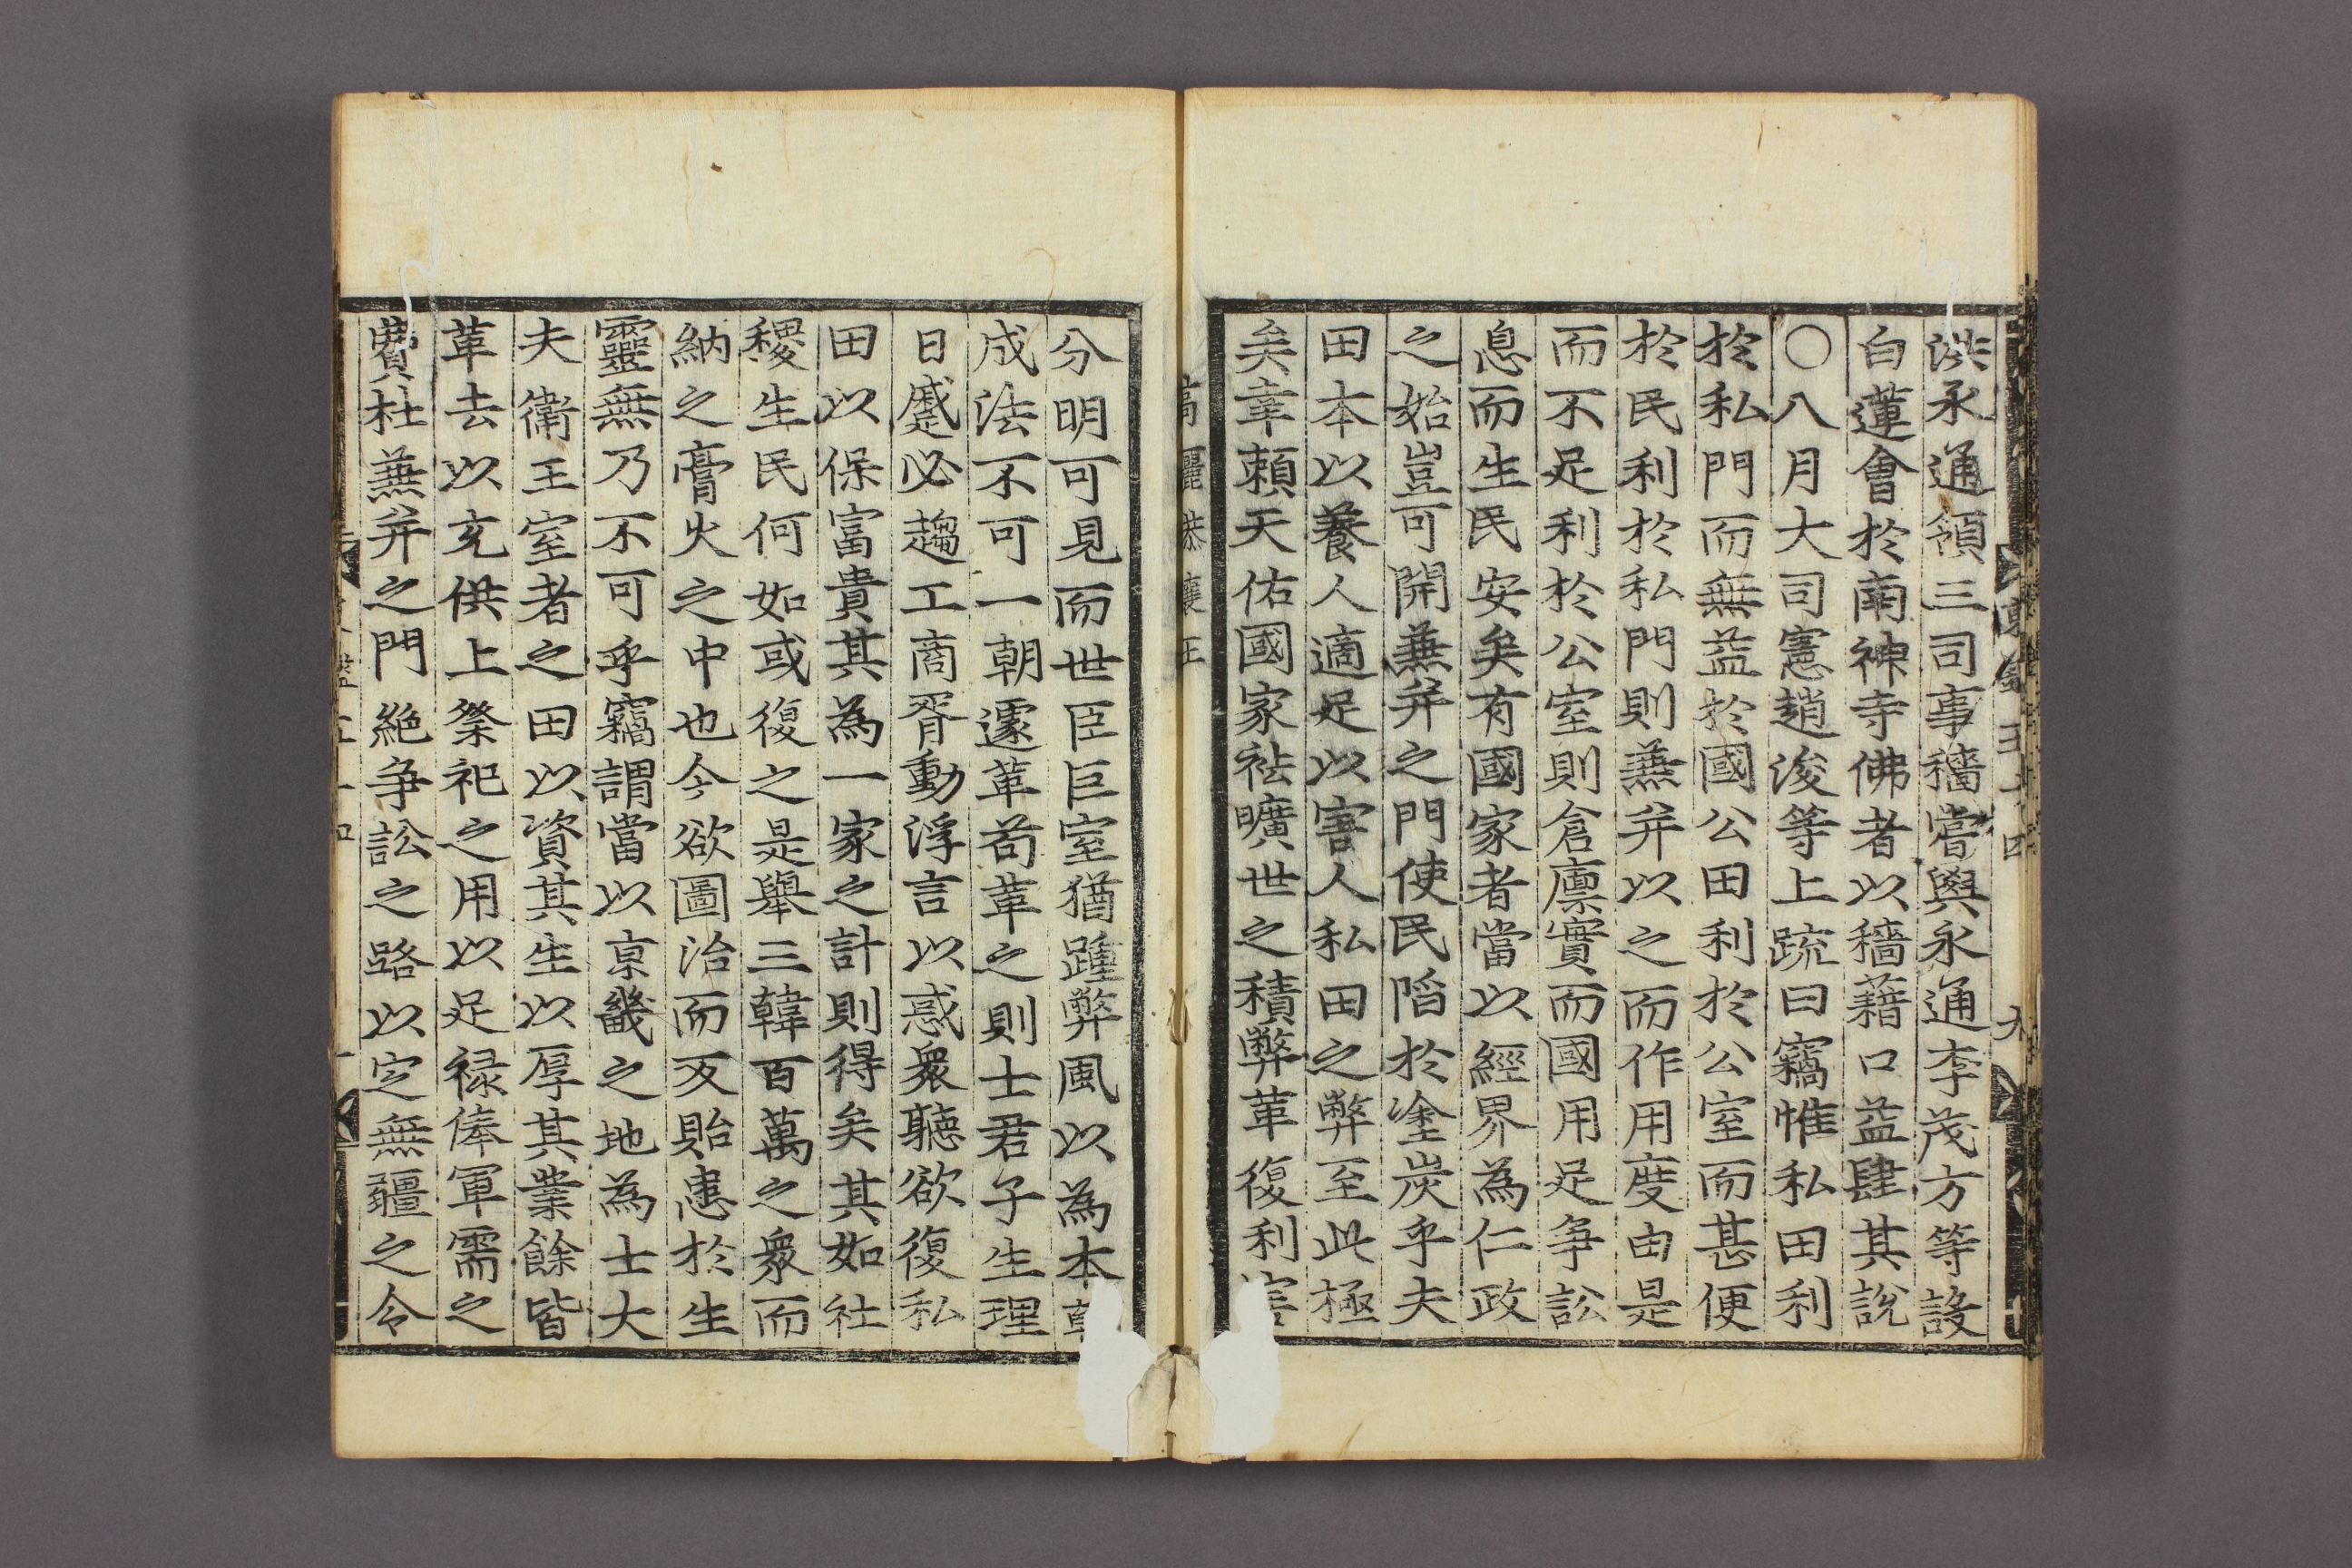 洪永通領三司事穡嘗與永通李茂方等設
白蓮會於南神寺佛者以穡藉口益肆其說
○八月大司憲趙浚等上疏曰竊惟私田利
於私門而無益於國公田利於公室而甚便
於民利於私門則兼并以之而作用度由是
而不足利於公室則倉廩實而國用足爭訟
息而生民安矣有國家者當以經界為仁政
之始豈可開兼并之門使民陷於塗炭乎夫
田本以養人適足以害人私田之弊至此極
矣幸賴天佑國家祛曠世之積弊革復利害
高麗恭讓王
分明可見而世臣巨室猶踵弊風以為本朝
成法不可一朝遽革苟革之則士君子生理
日蹙必趨工商胥動浮言以惑衆聽欲復私
田以保富貴其為一家之計則得矣其如社
稷生民何如或復之是舉三韓百萬之衆而
納之膏火之中也今欲圖治而反貽患於生
靈無乃不可乎竊謂當以京畿之地為士大
夫衛王室者之田以資其生以厚其業餘皆
革去以充供上祭祀之用以足祿俸軍需之
費杜兼并之門絕爭訟之路以定無疆之令